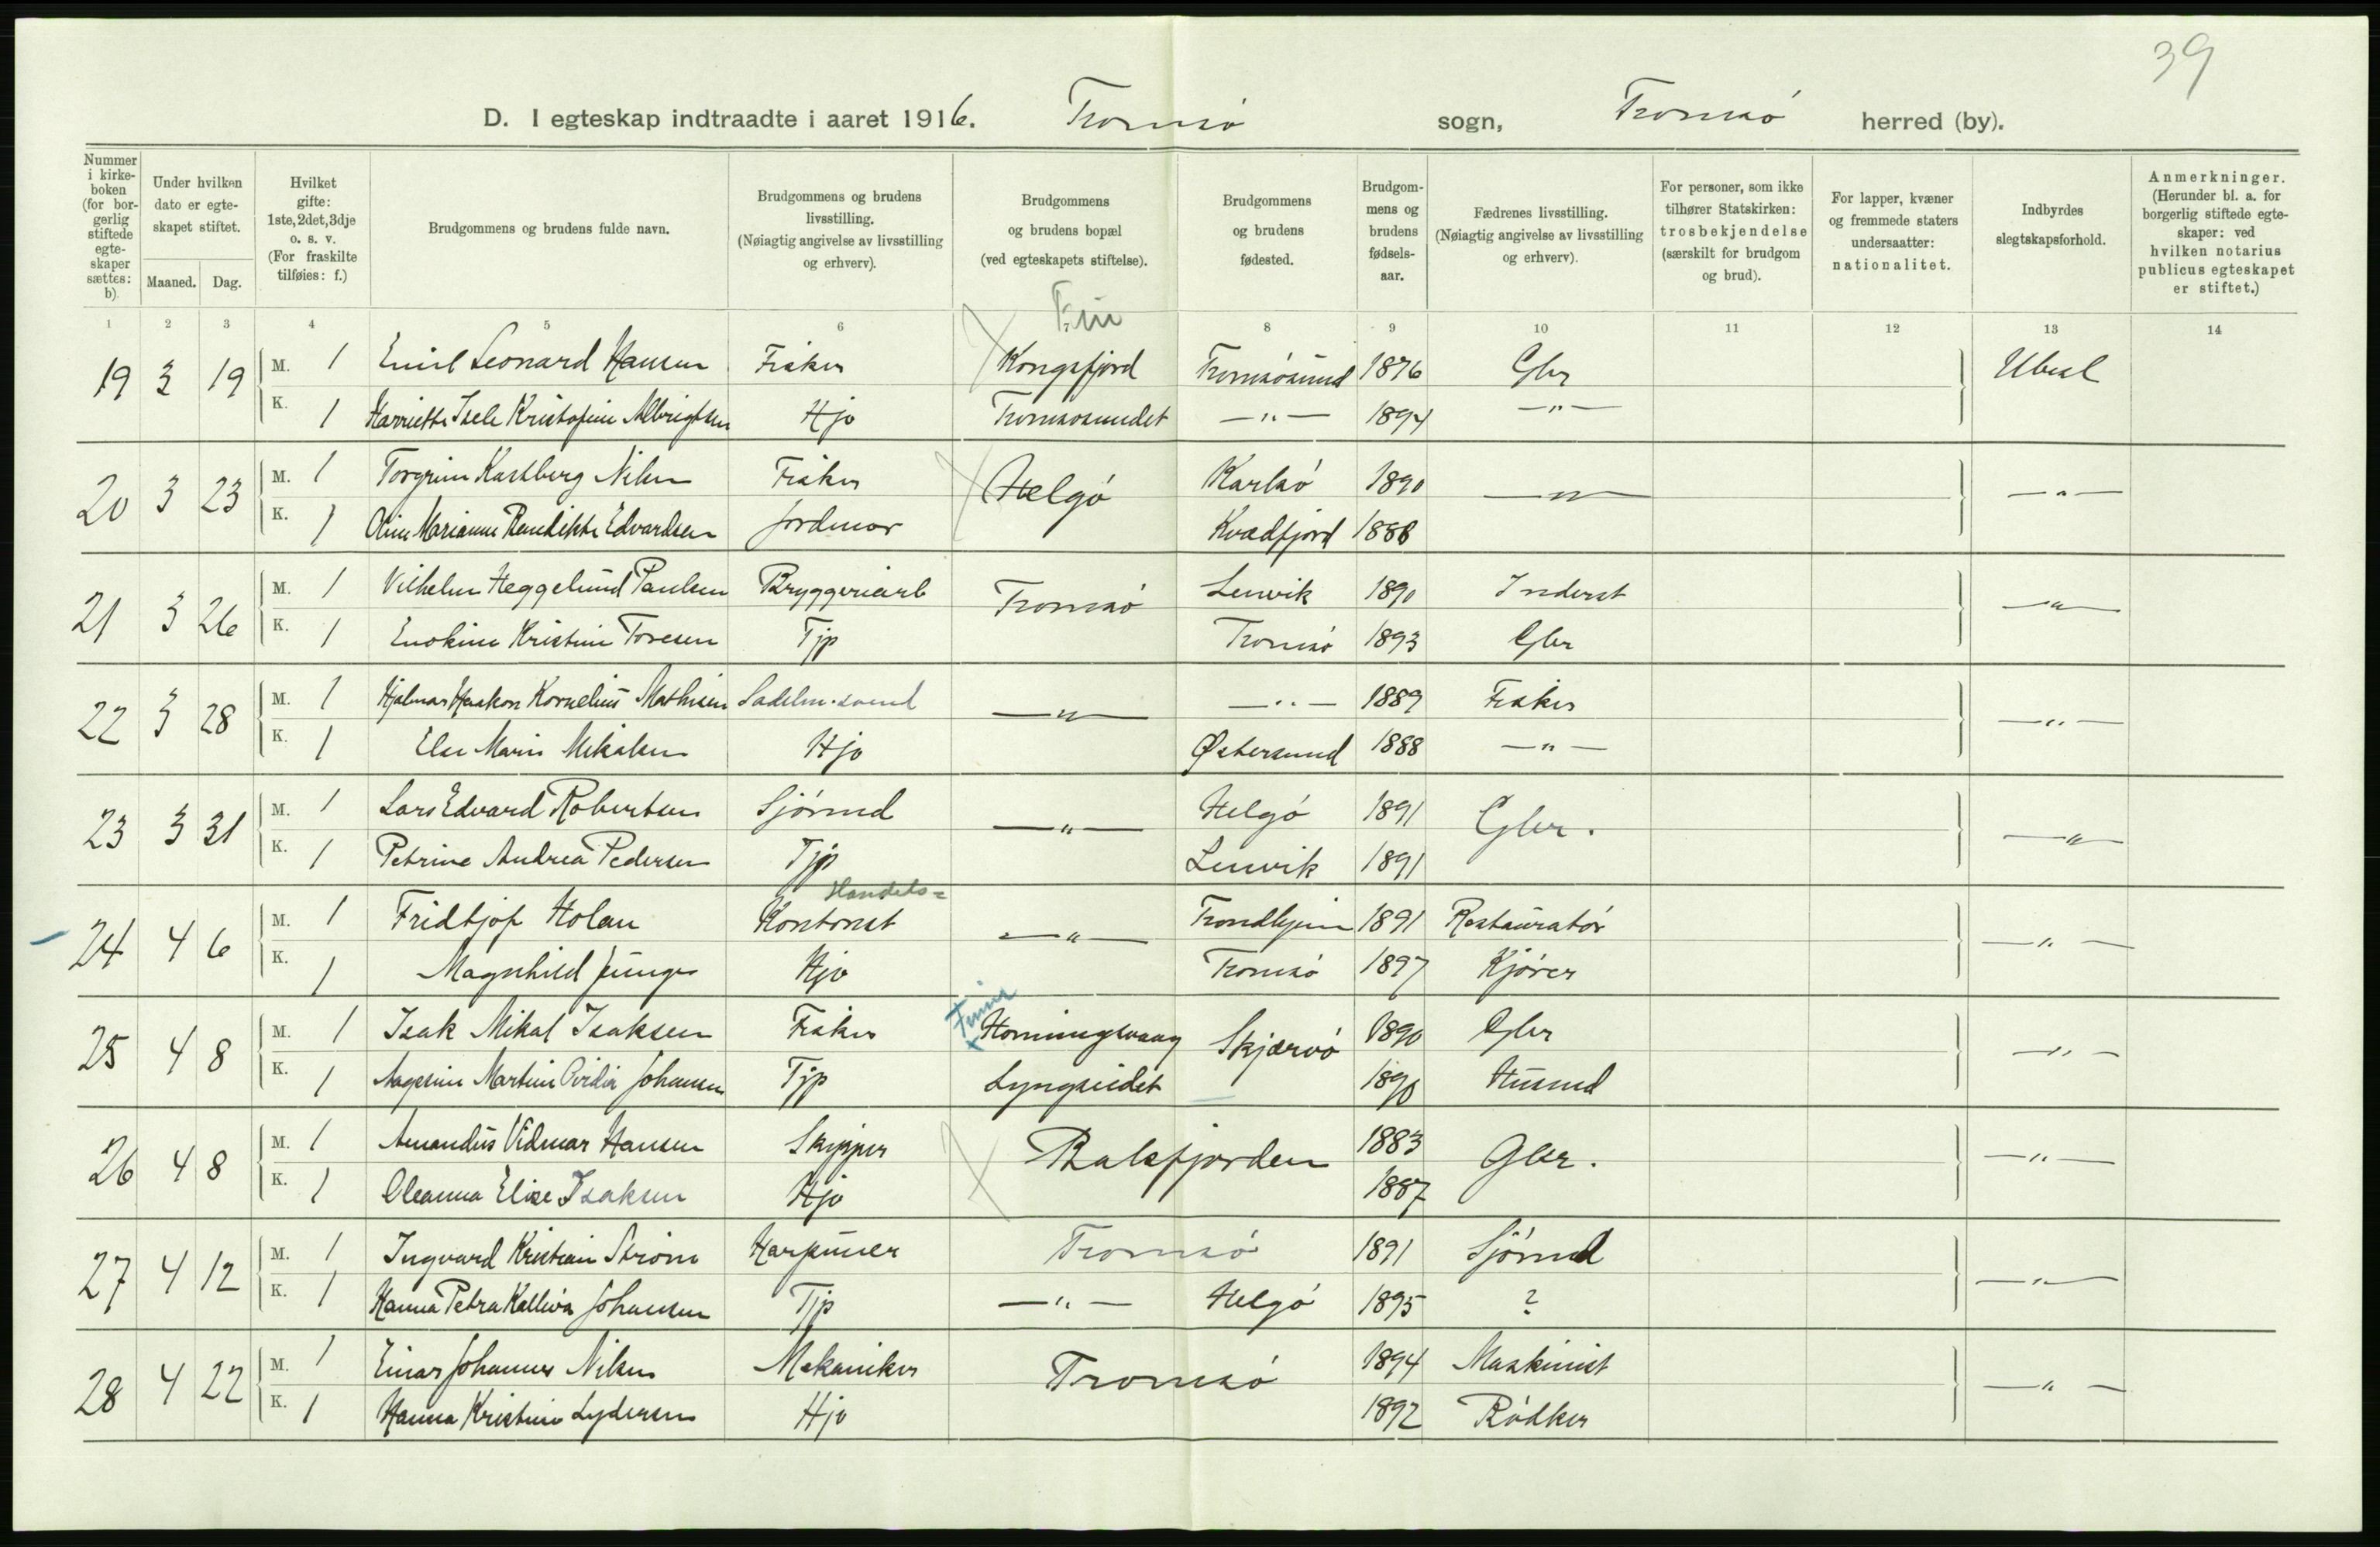 39
D. I egteskap indtraadte i aaret 1916. Tromsö sogn, Tromsö herred (by).
Nummer i kirke-boken (for bor-gerlig stiftede egte-skaper sættes: b).
Under hvilken dato er egte-skapet stiftet.
Maaned. Dag.
Hvilket gifte: 1ste, 2det, 3dje o. s. v. (For fraskilte tilføies: f.)
Brudgommens og brudens fulde navn.
Brudgommens og brudens livsstilling. (Nøiagtig angivelse av livsstilling og erhverv).
Brudgommens og brudens bopæl (ved egteskapets stiftelse).
Brudgommens og brudens fødested.
Brudgom-mens og brudens fødsels-aar.
Fædrenes livsstilling. (Nøiagtig angivelse av livsstilling og erhverv).
For personer, som ikke tilhører Statskirken: trosbekjendelse (særskilt for brudgom og brud).
For lapper, kvæner og fremmede staters undersaatter: nationalitet.
Indbyrdes slegtskapsforhold.
Anmerkninger. (Herunder bl. a. for borgerlig stiftede egte-skaper: ved hvilken notarius publicus egteskapet er stiftet.)
1 2 3 4 5 6 7 8 9 10 11 12 13 14
Fin
19 3 19 M. 1 Emil Leonard Hansen Fisker Kongsfjord Tromsösund 1876 Gbr Ubesl
K. 1 Harriette Isele Kristofine Albrigtsen Hjo Tromsösundet —"— 1894 —"—
20 3 23 M. 1 Torgrim Kastberg Nilsen Fisker Helgö Karlsö 1890 —"— —"—
K. 1 Oline Marianne Bendikte Edvardsen Jordmor Kvædfjord 1888
21 3 26 M. 1 Vilhelm Heggelund Paulsen Bryggeriarb Tromsö Lenvik 1890 Inderst —"—
K. 1 Enokine Kristine Toresen Tjp Tromsö 1893 Gbr
22 3 28 M. 1 Hjalmar Haakon Kornelius Mathisen Sadelm.svend —"— —"— 1889 Fisker —"—
K. 1 Else Marie Mikalsen Hjo Østersund 1888 —"—
23 3 31 M. 1 Lars Edvard Robertsen Sjömd —"— Helgö 1891 Gbr. —"—
K. 1 Petrine Andrea Pedersen Tjp Lenvik 1891
Handels=
24 4 6 M. 1 Fridtjof Holan Kontorist —"— Trondhjem 1891 Restauratör —"—
K. 1 Magnhild Junge Hjo Tromsö 1897 Kjörer
Finm
25 4 8 M. 1 Isak Mikal Isaksen Fisker Honningsvaag Skjærvö 1890 Gbr —"—
K. 1 Aagesine Martine Ovidia Johansen Tjp Lyngseidet 1890 Husmd
26 4 8 M. 1 Amandus Vidmar Hansen Skipper Balsfjorden 1883 Gbr. —"—
K. 1 Oleanna Elise Isaksen Hjo 1887
27 4 12 M. 1 Ingvard Kristian Ström Harpuner Tromsö 1891 Sjömd —"—
K. 1 Hanna Petra Kalliva Johansen Tjp —"— Helgö 1895 ?
28 4 22 M. 1 Einar Johannes Nilsen Mekaniker Tromsö 1894 Maskinist —"—
K. 1 Hanna Kristine Lydersen Hjo 1892 Bödker